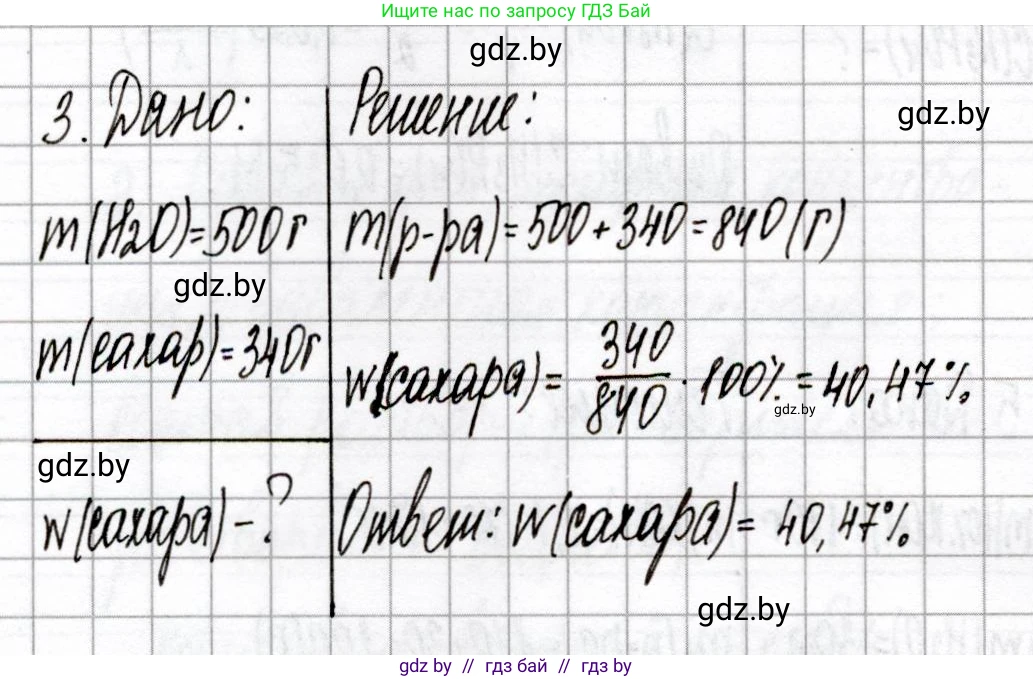 Ищите нас по запросу ГДЗ Бай
gdz.by
3. Дано:
Решение:
gdz.by
m(H2O)=500г
m(р-ра)=500+340=840(г)
gdz.by
m(сахар)=340г
w(сахара)= 340/840 · 100% = 40,47%
gdz.by
gdz.by
w(сахара) - ?
Ответ: w(сахара)= 40,47%
gdz.by
gdz.by // гдз бай // gdz.by